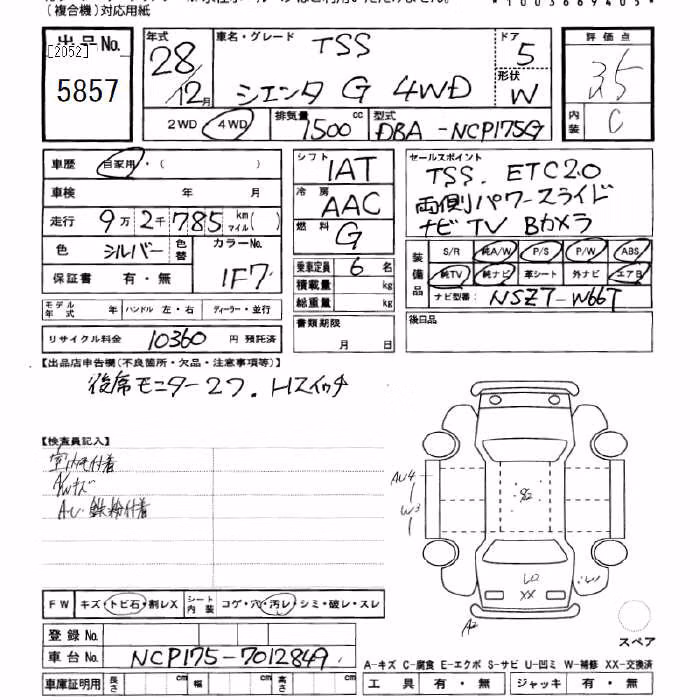 (複合機)対応用紙
出品No.
[2052]
5857
年式
28/12月
車名・グレード
TSS
シエンタ G 4WD
ドア
5
形状
W
評価点
内装
C
2WD 4WD
排気量 1500 cc
型式 DBA-NCP175G
車歴 自家用・( )
車検 年 月
走行 9万2千785 km マイル( )
色 シルバー 色替
カラーNo. 1F7
保証書 有・無
シフト 1AT
冷房 AAC
燃料 G
乗車定員 6 名
積載量 kg
総重量 kg
セールスポイント
TSS. ETC2.0
両側パワースライド
ナビ TV Bカメラ
装備品
S/R 純A/W P/S P/W ABS
純TV 純ナビ 革シート 外ナビ エアB
ナビ型番: NSZT-W66T
モデル年式 年 ハンドル 左・右 ディーラー・並行
リサイクル料金 10360 円 預託済
書類期限
月 日
後日品
【出品店申告欄(不良箇所・欠品・注意事項等)】
後席モニター2つ. Hスイッチ
【検査員記入】
室内モノ付着
AWキズ
A・U 鉄粉付着
AU4
W3
A2
XX
FW キズ・トビ石・割レX
シート内装 コゲ・穴・汚レ・シミ・破レ・スレ
スペア
登録No.
車台No. NCP175-7012849
A-キズ C-腐食 E-エクボ S-サビ U-凹ミ W-補修 XX-交換済
車庫証明用 長さ cm 幅 cm 高さ cm
工具 有・無 ジャッキ 有・無